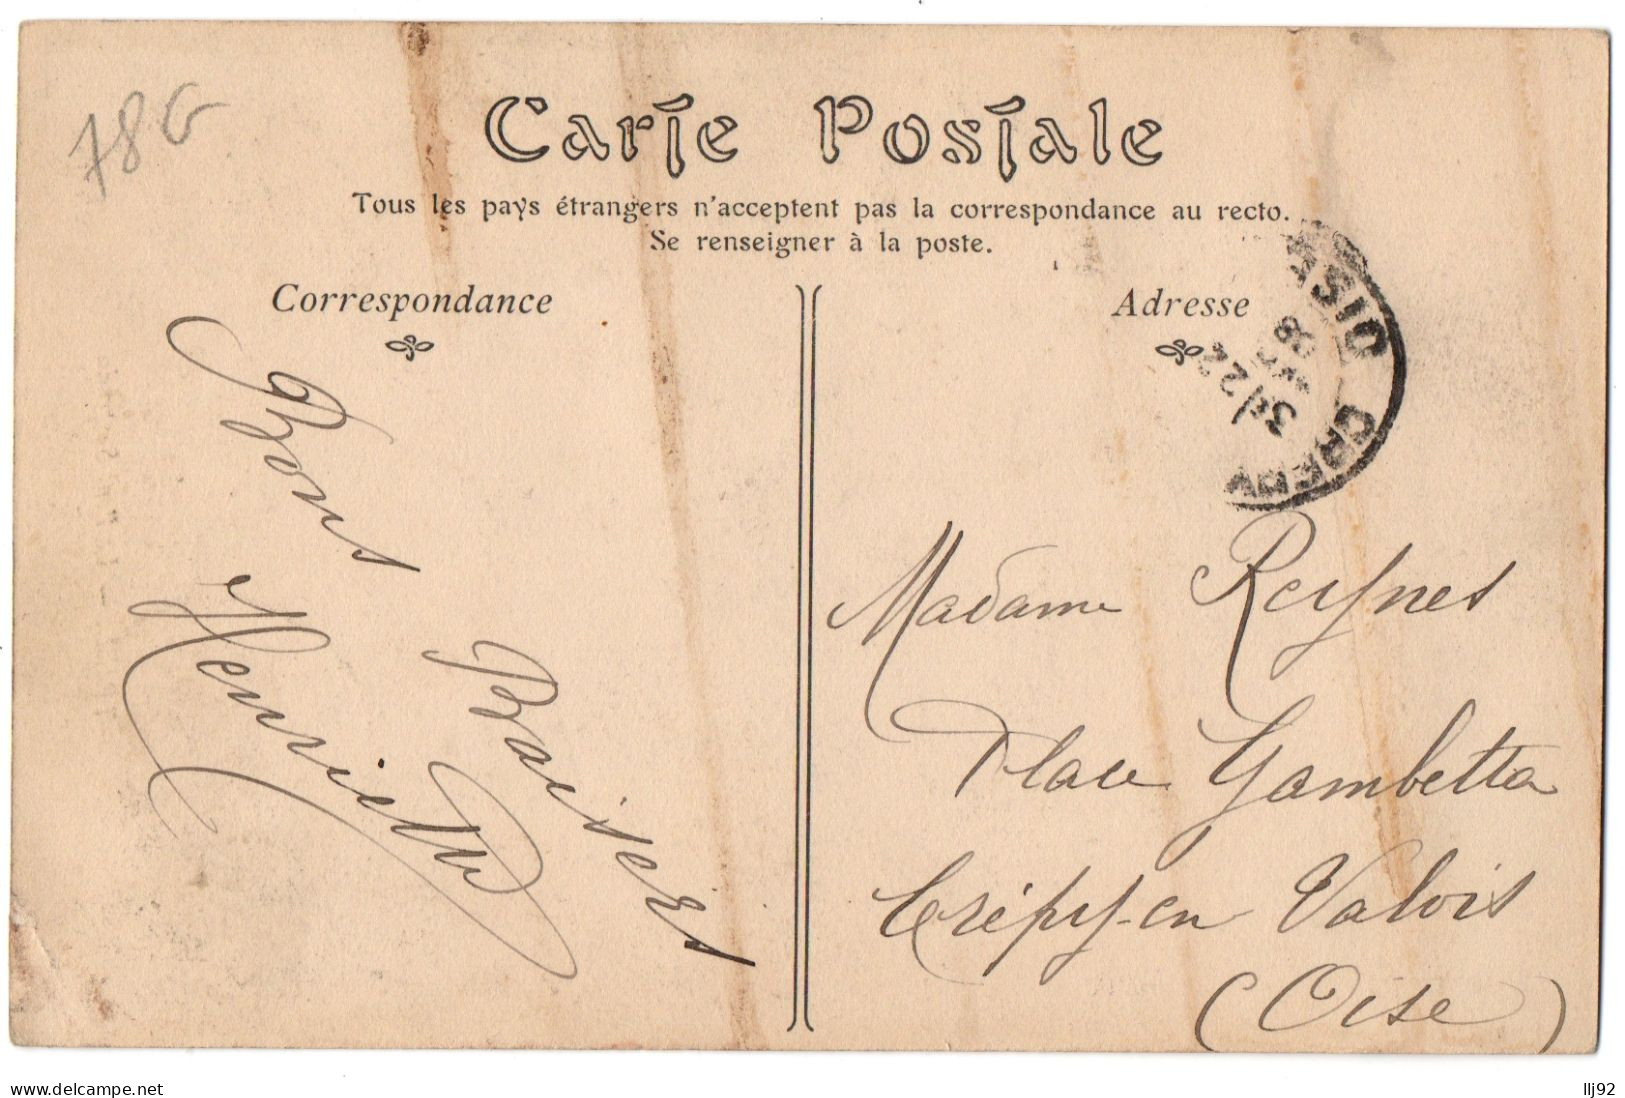 78 G
Carte Postale
Tous les pays étrangers n'acceptent pas la correspondance au recto.
Se renseigner à la poste.
Correspondance
Bons
Baisers
Henriette
Adresse
OISE
CREPY
Madame Reynes
Place Gambetta
Crépy-en Valois
(Oise)
www.delcampe.net
llj92